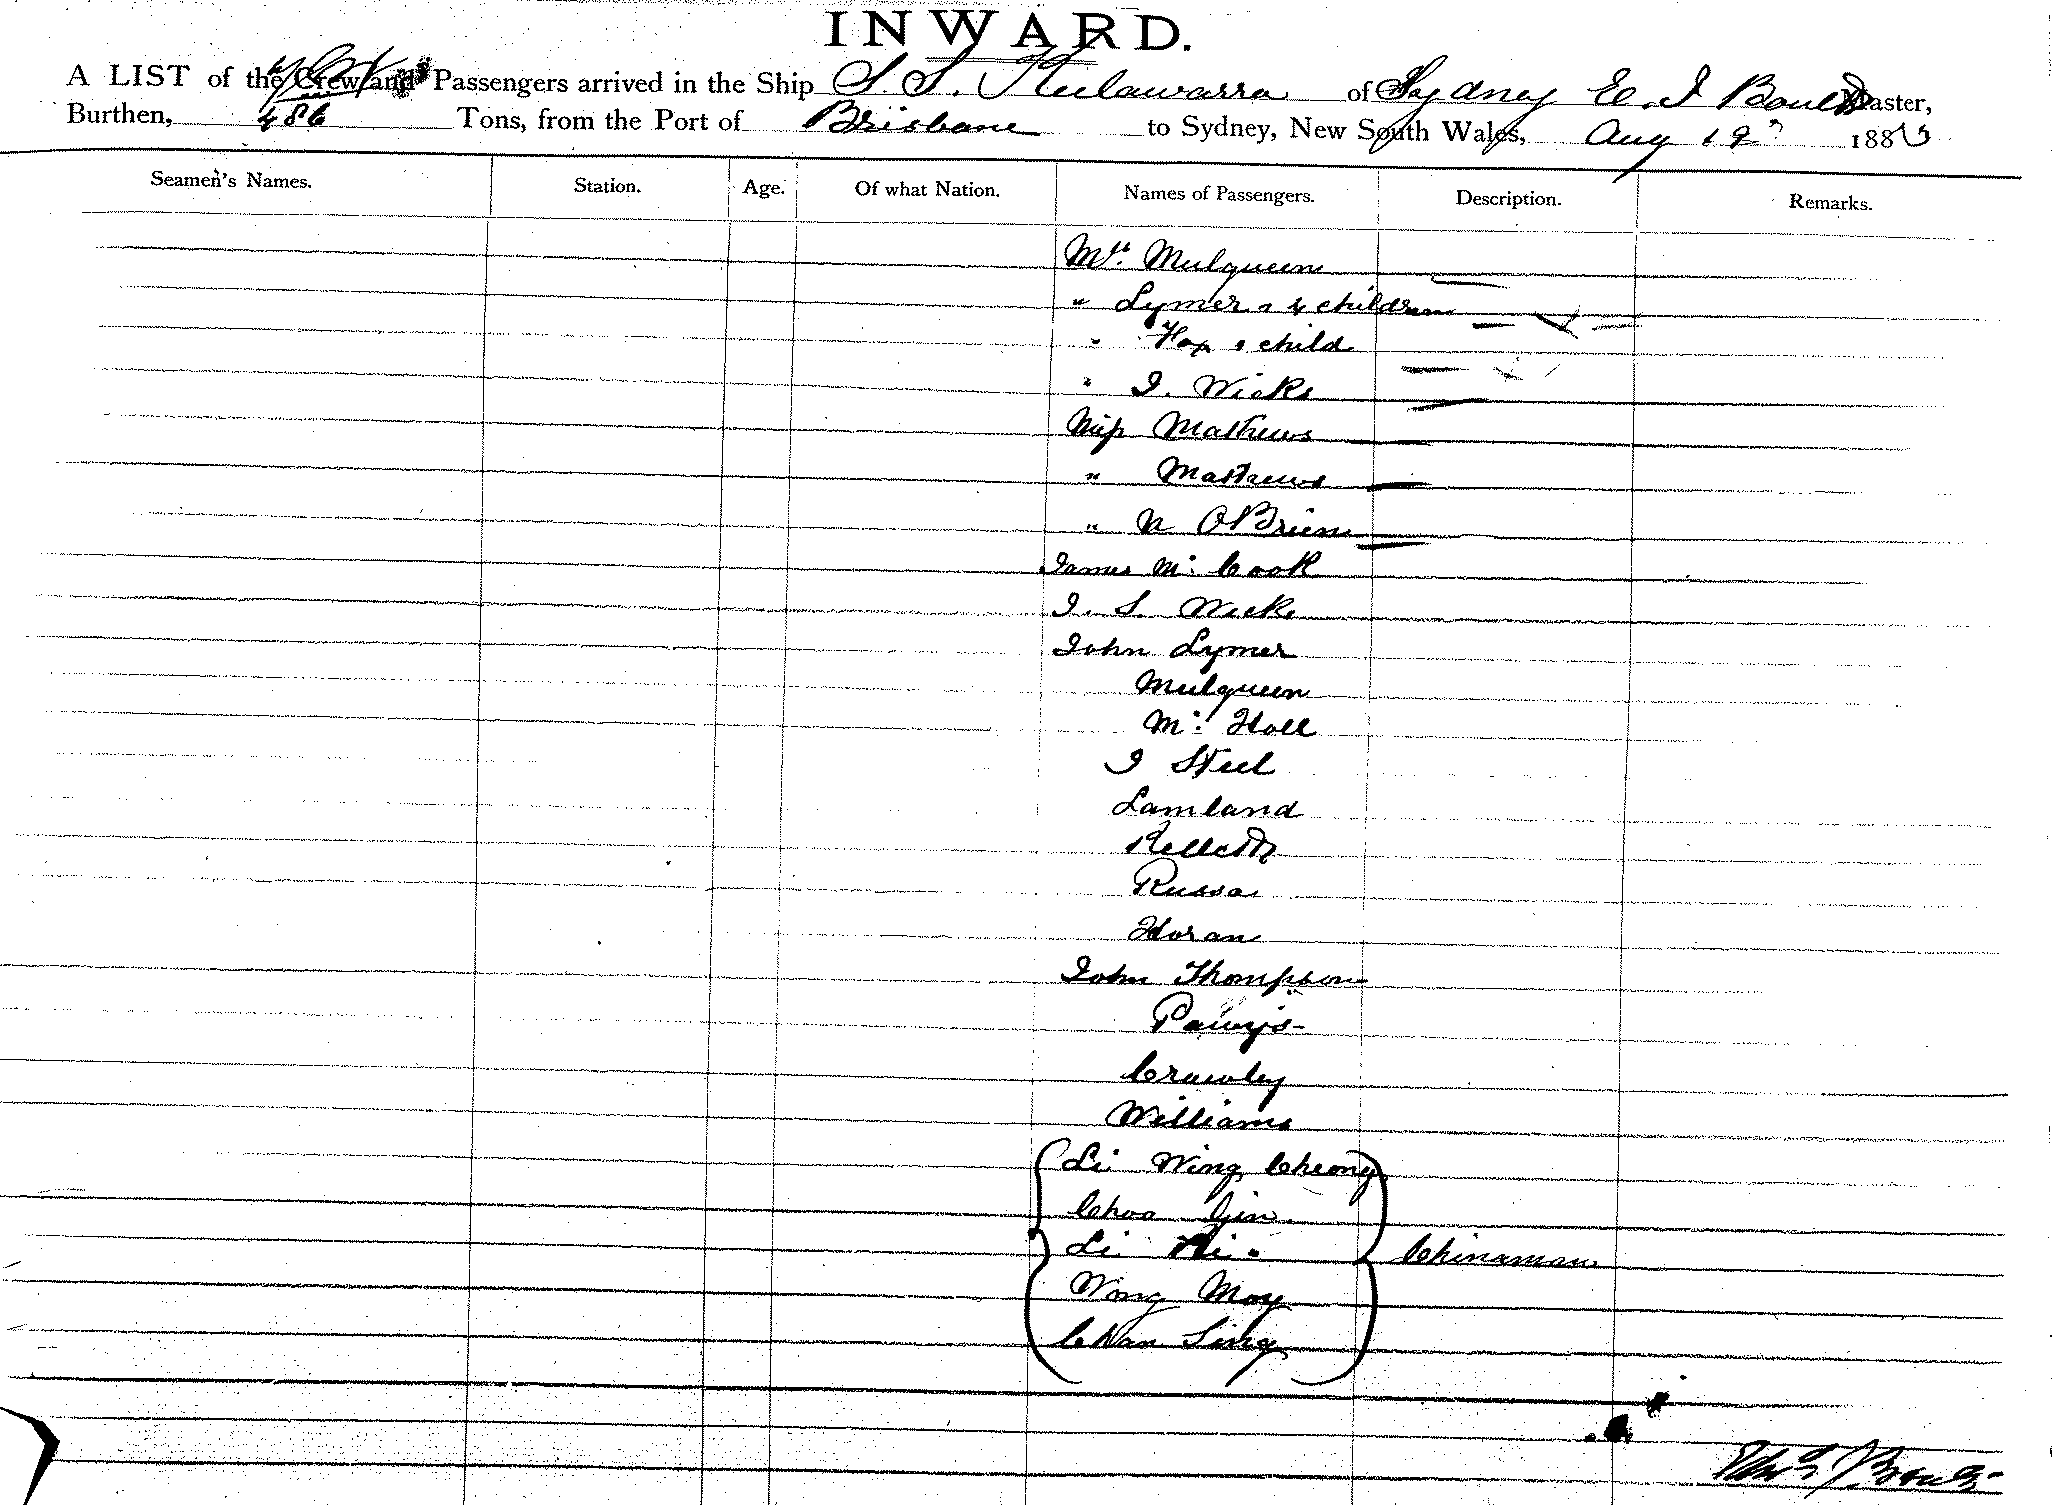 INWARD.
A LIST of the Crew and Passengers arrived in the Ship S. S. Keilawarra of Sydney E. J Boult Master,
Burthen, 486 Tons, from the Port of Brisbane to Sydney, New South Wales, Aug 19 188
Seamen's Names. Station. Age. Of what Nation. Names of Passengers. Description. Remarks.
Mrs. Mulqueen
" Lymer & 4 children
" & child
" J. Wicks
Miss Mathews
" Mathews
" N OBrien
James Mc Cook
J. S. Wicks
John Lymer
Mulqueen
Mc Holl
J Steel
Lamland
Kellett
Russa
Horan
John Thompson
Crawley
Williams
Li Wing Cheong
Choo Gin
Li
Wong Moy Chinaman
Chan Sing